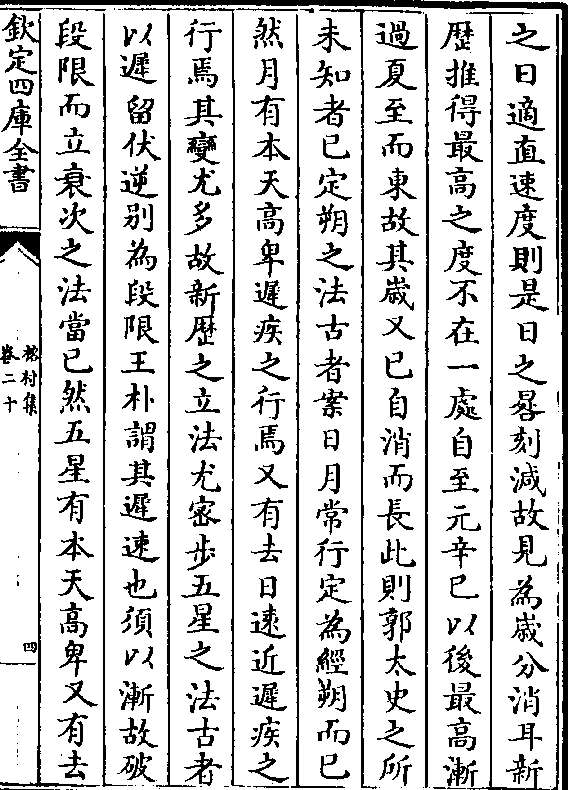 之日適直速度則是日之晷刻減故見為歲分消耳新
歴推得最高之度不在一處自至元辛巳以後最高漸
過夏至而東故其嵗又已自消而長此則郭太史之所
未知者已定朔之法古者案日月常行定為經朔而已
然月有本天高卑遲疾之行焉又有去日逺近遲疾之
行焉其變尤多故新歴之立法尤宻步五星之法古者
以遲留伏逆別為段限王朴謂其遲速也須以漸故破
段限而立衰次之法當已然五星有本天高卑又有去
欽定四庫全書
榕村集
卷二十
四